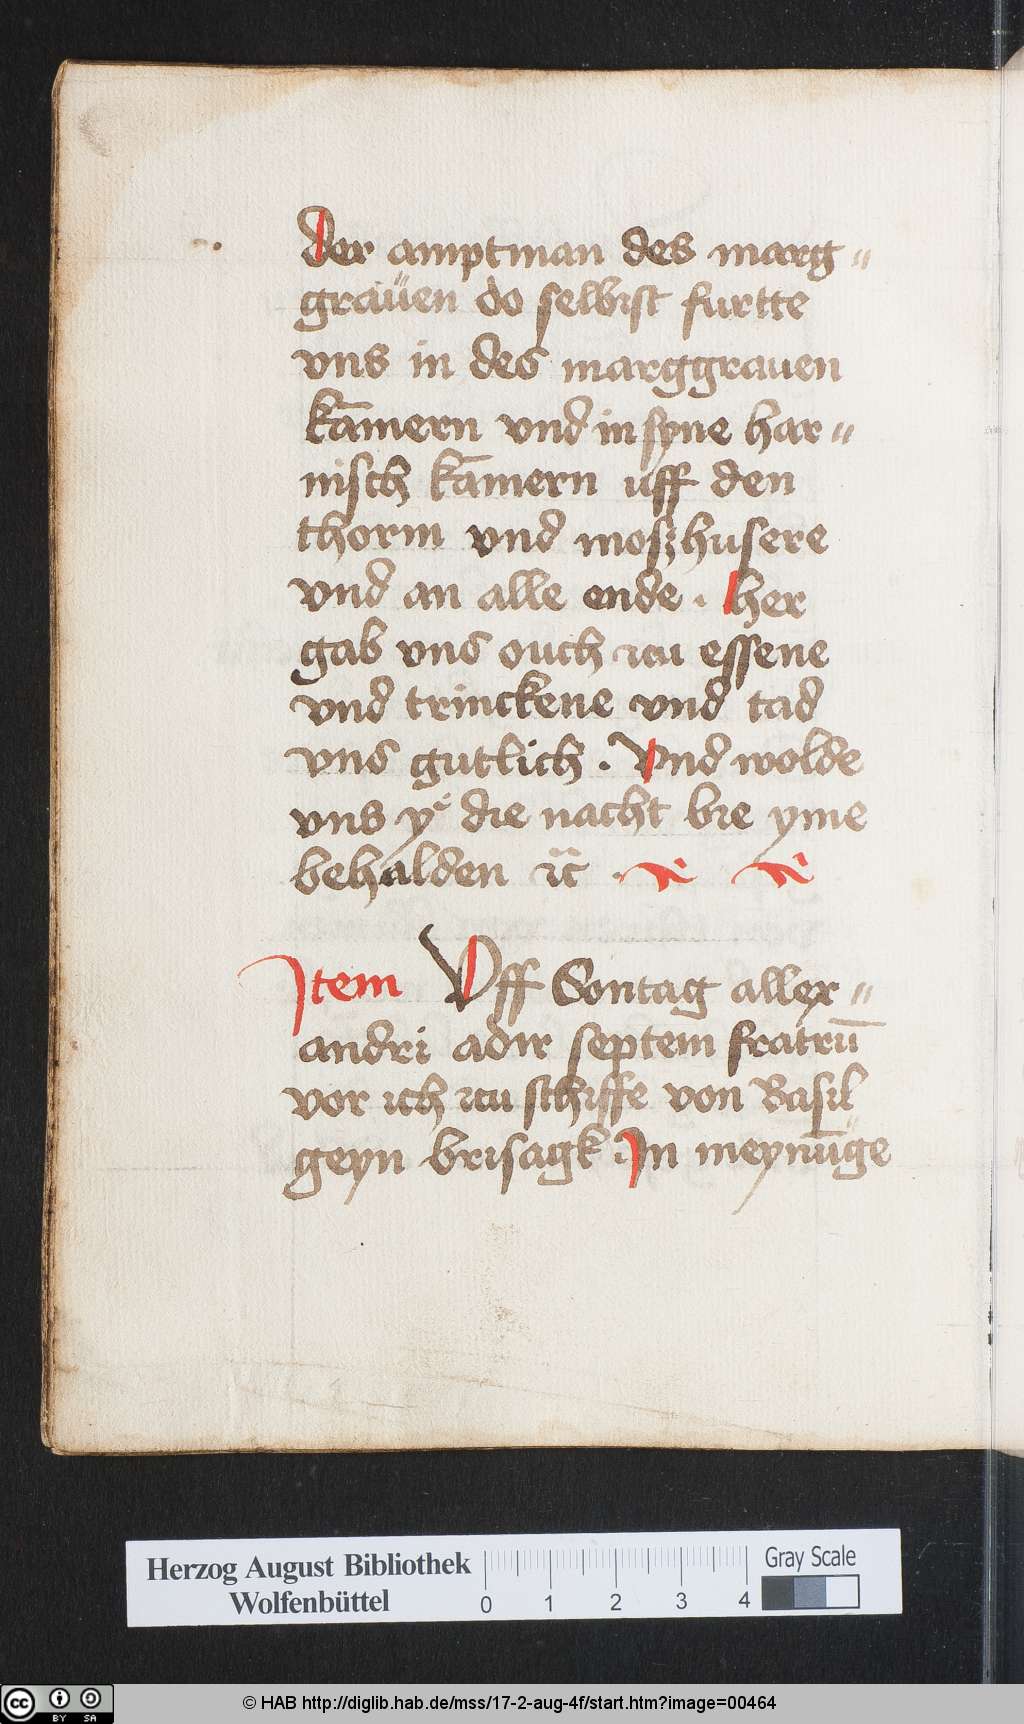 Der amptman des marg〃
grauen do selbist furtte
vns in des marggrauen
kāmern vnd in syne har〃
nisch kāmern uff den
thorm vnd moszhusere
vnd an alle ende . her
gab vns ouch zcu essene
vnd trinckene vnd tad
vns gutlich . Vnd wolde
vns ye die nacht bie yme
behalden ꝛc .
Item Vff Sontag allex〃
andri adir septem fratrū
vor ich zcu schiffe von Basil
geyn brisagk . In meynūge
Herzog August Bibliothek
Wolfenbüttel
0 1 2 3 4
Gray Scale
cc BY SA
© HAB http://diglib.hab.de/mss/17-2-aug-4f/start.htm?image=00464